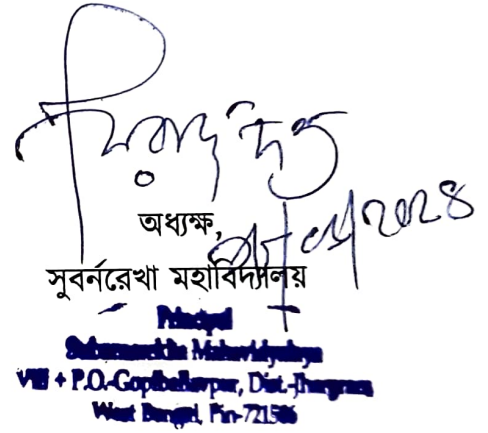 অধ্যক্ষ,
সুবর্নরেখা মহাবিদ্যালয়
Principal
Subarnarekha Mahavidyalaya
Vill + P.O.-Gopiballavpur, Dist.-Jhargram
West Bengal, Pin-721506